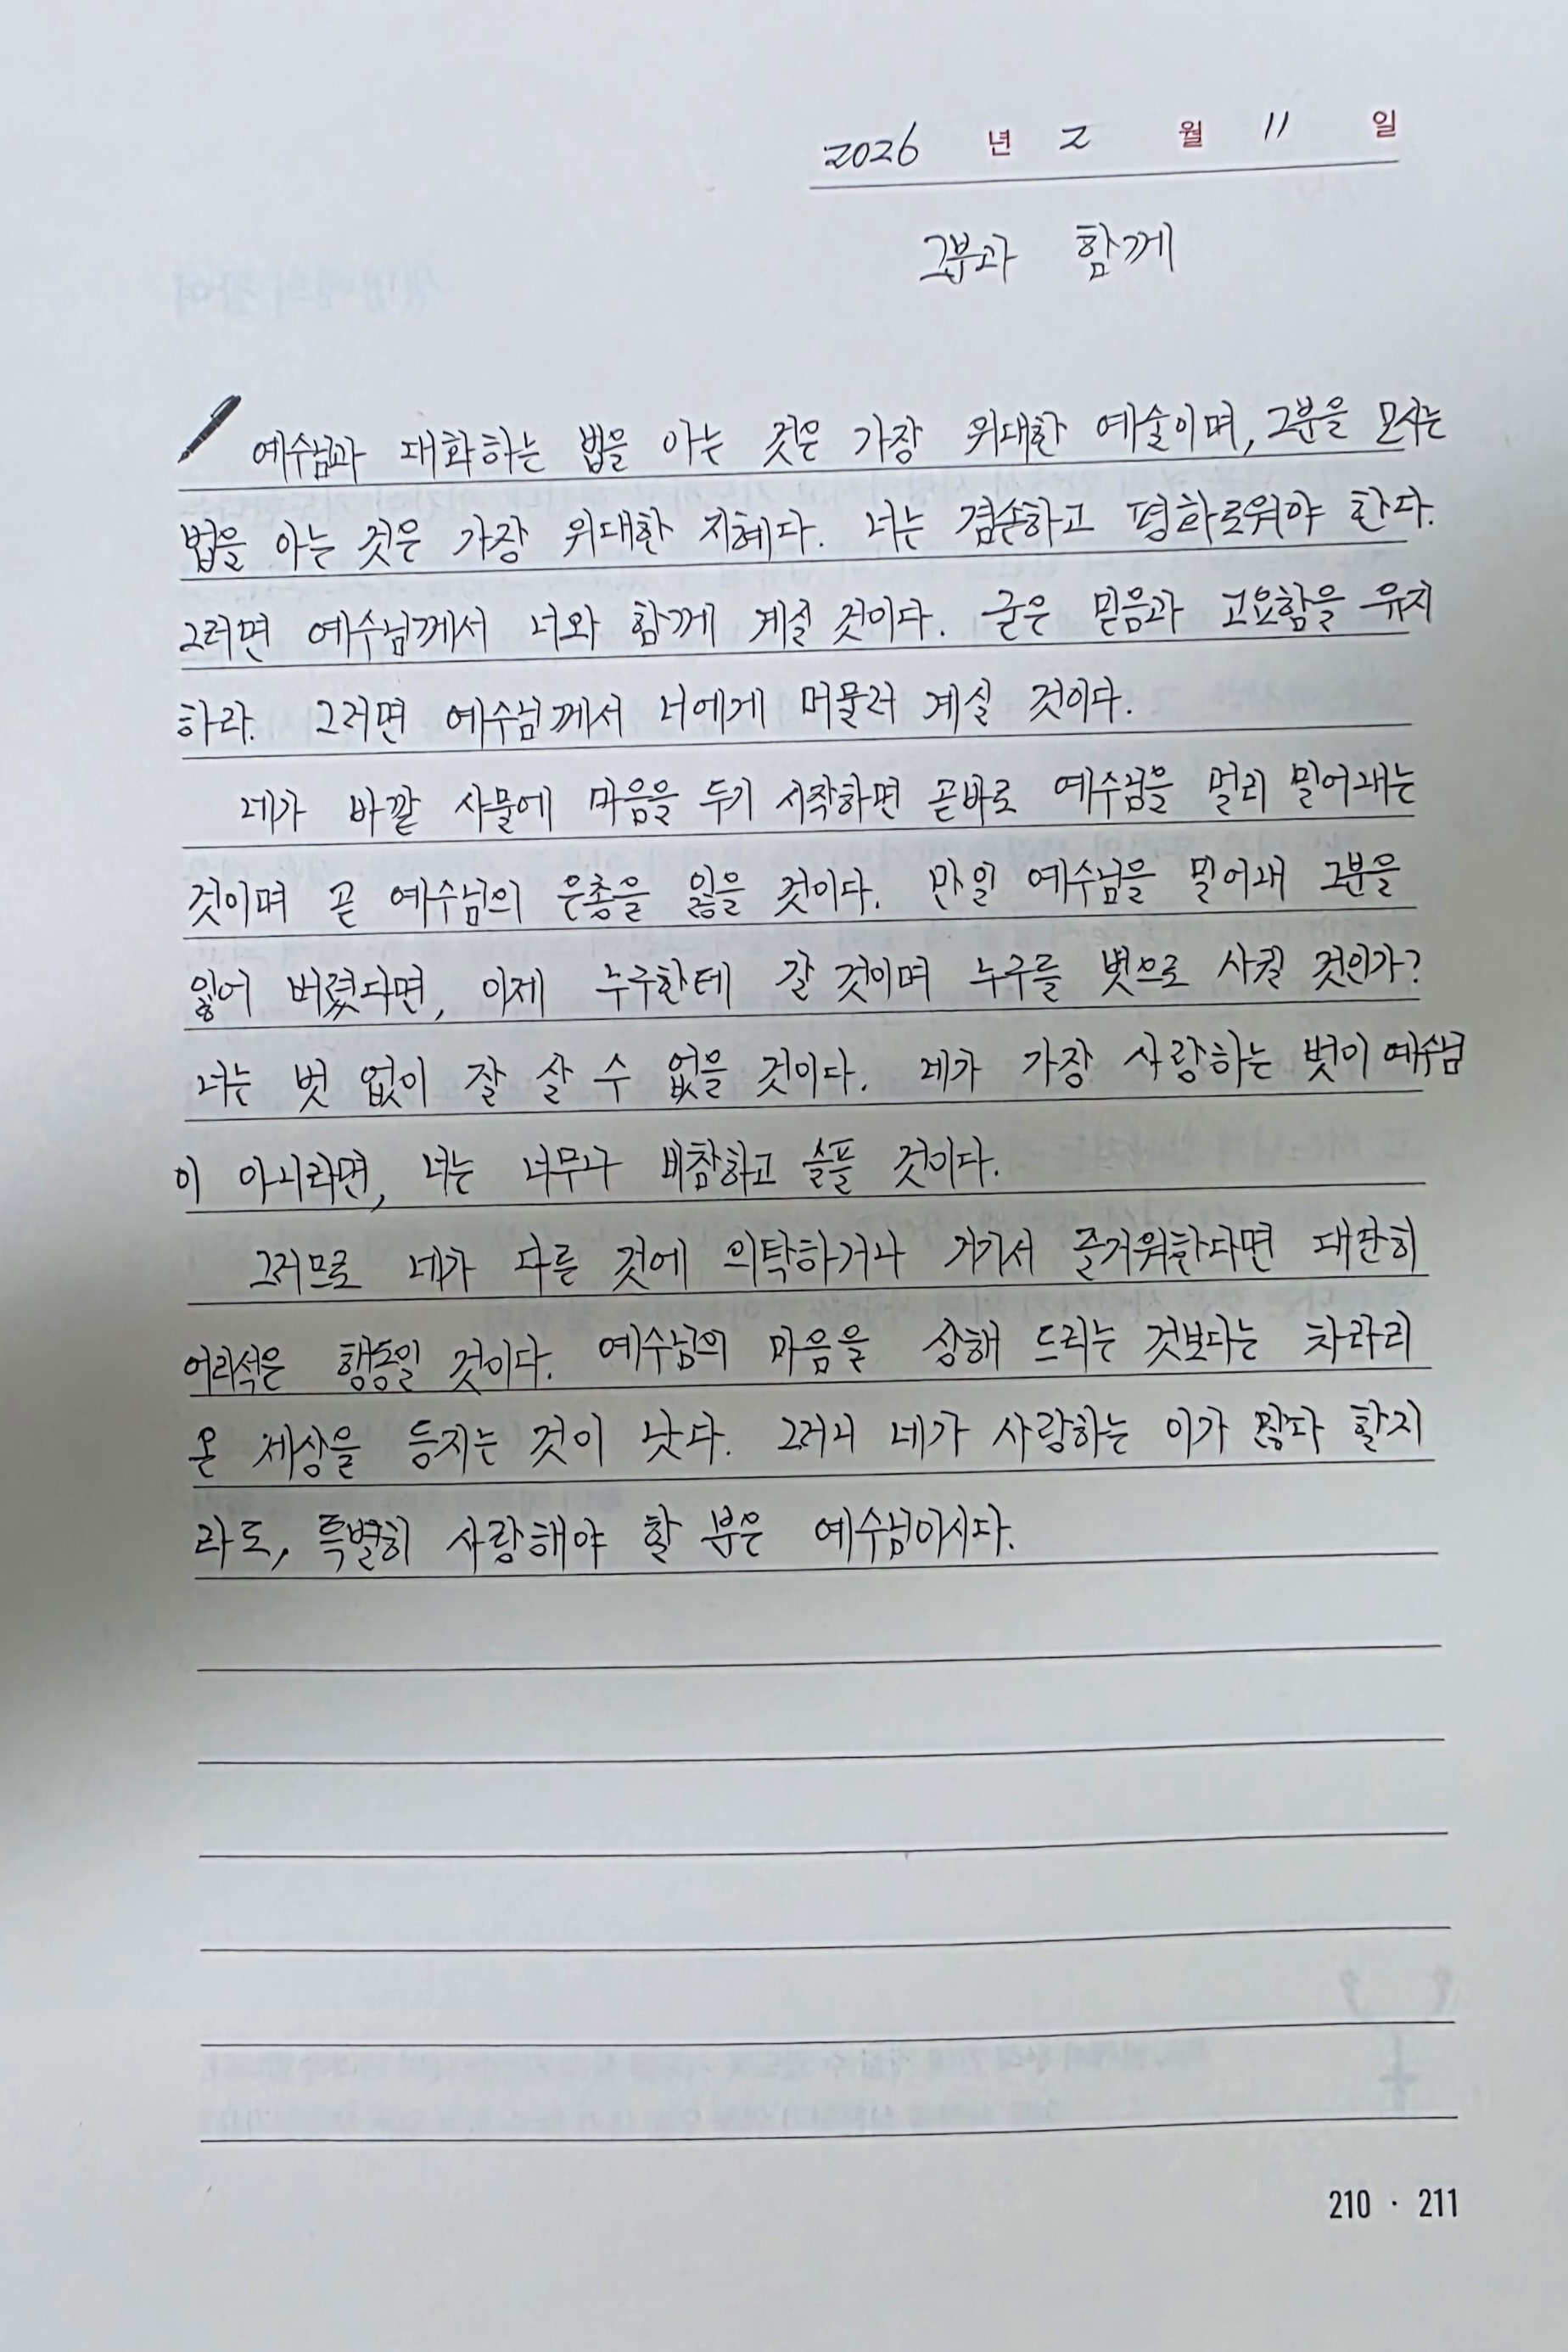 2026 년 2 월 11 일
그분과 함께
예수님과 대화하는 법을 아는 것은 가장 위대한 예술이며, 그분을 모시는
법을 아는 것은 가장 위대한 지혜다. 너는 겸손하고 평화로워야 한다.
그러면 예수님께서 너와 함께 계실 것이다. 굳은 믿음과 고요함을 유지
하라. 그러면 예수님께서 너에게 머물러 계실 것이다.
네가 바깥 사물에 마음을 두기 시작하면 곧바로 예수님을 멀리 밀어내는
것이며 곧 예수님의 은총을 잃을 것이다. 만일 예수님을 밀어내 그분을
잃어 버렸다면, 이제 누구한테 갈 것이며 누구를 벗으로 사귈 것인가?
너는 벗 없이 잘 살 수 없을 것이다. 네가 가장 사랑하는 벗이 예수님
이 아니라면, 너는 너무나 비참하고 슬플 것이다.
그러므로 네가 다른 것에 의탁하거나 거기서 즐거워한다면 대단히
어리석은 행동일 것이다. 예수님의 마음을 상해 드리는 것보다는 차라리
온 세상을 등지는 것이 낫다. 그러니 네가 사랑하는 이가 많다 할지
라도, 특별히 사랑해야 할 분은 예수님이시다.
210 · 211